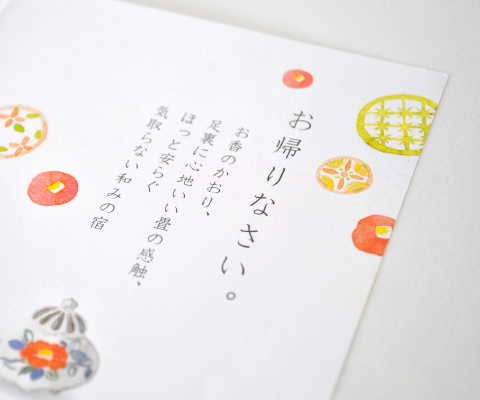 お帰りなさい。
お香のかおり、
足裏に心地いい畳の感触、
ほっと安らぐ
気取らない和みの宿